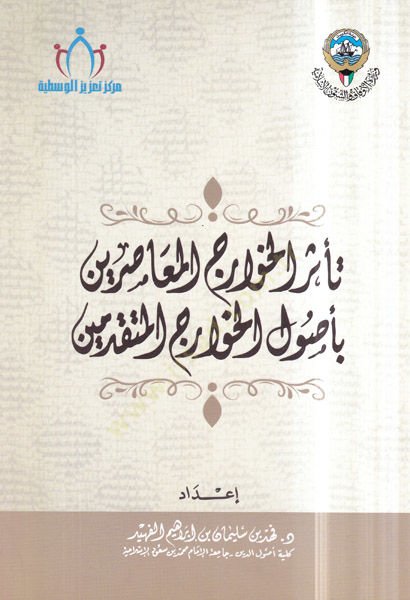 وزارة الأوقاف والشئون الإسلامية
مركز تعزيز الوسطية
تأثر الخوارج المعاصرين
بأصول الخوارج المتقدمين
إعداد
د. فهد بن سليمان بن إبراهيم الفهيد
كلية أصول الدين - جامعة الإمام محمد بن سعود الإسلامية